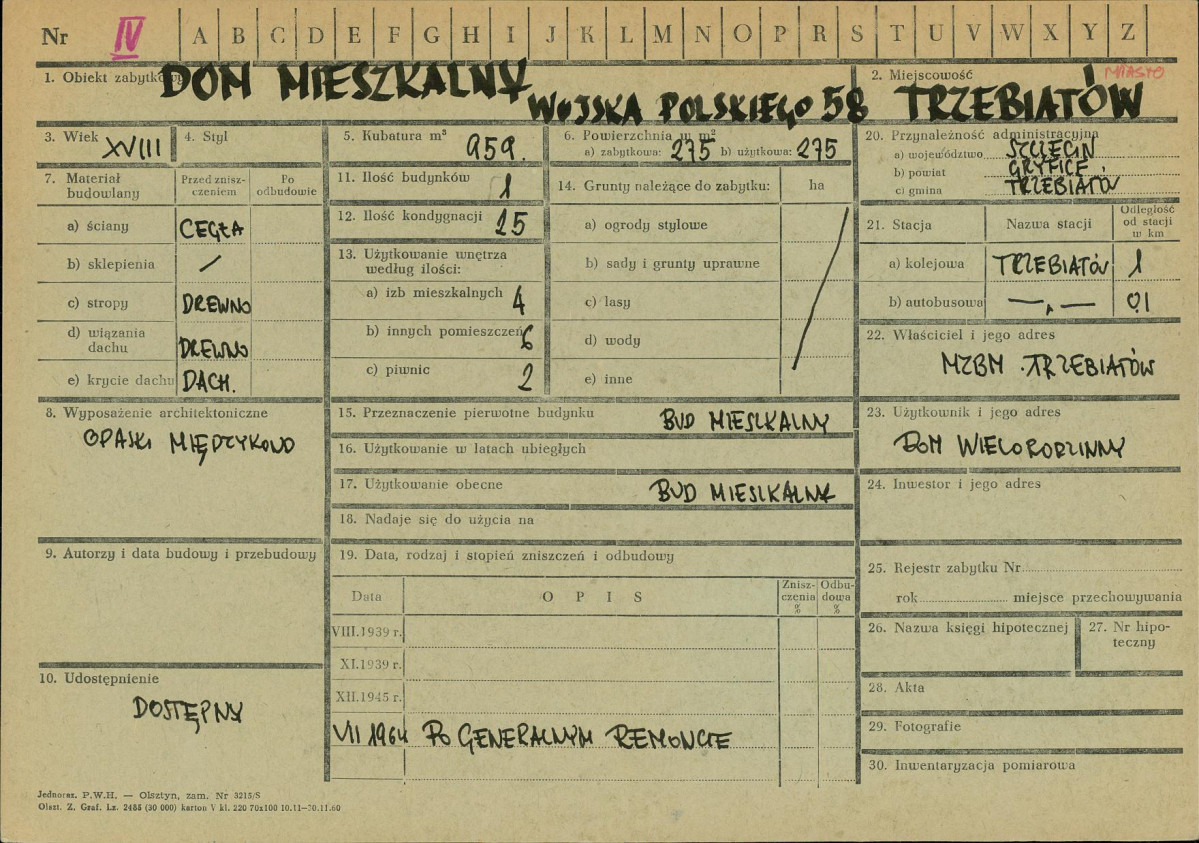 Nr IV A B C D E F G H I J K L M N O P R S T U V W X Y Z
1. Obiekt zabytkowy DOM MIESZKALNY
WOJSKA POLSKIEGO 58
2. Miejscowość MIASTO
TRZEBIATÓW
3. Wiek XVIII
4. Styl
5. Kubatura m³ 959.
6. Powierzchnia w m²
a) zabytkowa: 275 b) użytkowa: 275
7. Materiał budowlany
Przed zniszczeniem
Po odbudowie
a) ściany CEGŁA
b) sklepienia /
c) stropy DREWNO
d) wiązania dachu DREWNO
e) krycie dachu DACH.
8. Wyposażenie architektoniczne
OPASKI MIĘDZYKOND
9. Autorzy i data budowy i przebudowy
10. Udostępnienie
DOSTĘPNY
11. Ilość budynków 1
12. Ilość kondygnacji 25
13. Użytkowanie wnętrza
według ilości:
a) izb mieszkalnych 4
b) innych pomieszczeń 6
c) piwnic 2
14. Grunty należące do zabytku: ha
a) ogrody stylowe
b) sady i grunty uprawne
c) lasy
d) wody
e) inne
15. Przeznaczenie pierwotne budynku BUD MIESZKALNY
16. Użytkowanie w latach ubiegłych
17. Użytkowanie obecne BUD MIESZKALNY
18. Nadaje się do użycia na
19. Data, rodzaj i stopień zniszczeń i odbudowy
Data OPIS Zniszczenia % Odbudowa %
VIII.1939 r.
XI.1939 r.
XII.1945 r.
VII 1964 PO GENERALNYM REMONCIE
20. Przynależność administracyjna
a) województwo SZCZECIN
b) powiat GRYFICE
c) gmina TRZEBIATÓW
21. Stacja Nazwa stacji Odległość od stacji w km
a) kolejowa TRZEBIATÓW 1
b) autobusowa —„— 0,1
22. Właściciel i jego adres
MZBM . TRZEBIATÓW
23. Użytkownik i jego adres
DOM WIELORODZINNY
24. Inwestor i jego adres
25. Rejestr zabytku Nr
rok miejsce przechowywania
26. Nazwa księgi hipotecznej
27. Nr hipoteczny
28. Akta
29. Fotografie
30. Inwentaryzacja pomiarowa
Jednoraz. P.W.H. — Olsztyn, zam. Nr 3215/S
Olszt. Z. Graf. Lz. 2485 (30 000) karton V kl. 220 70x100 10.11—30.11.60